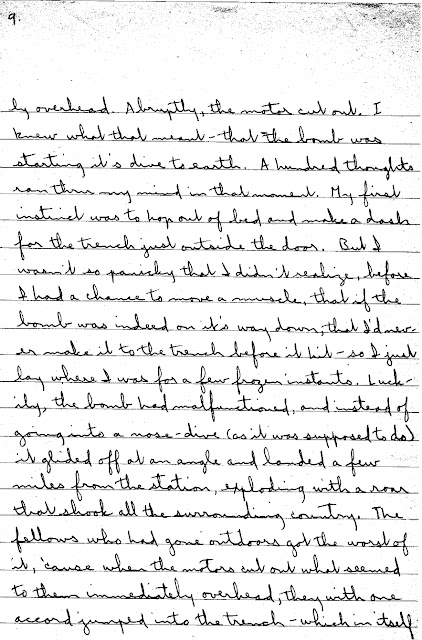 9.
ly overhead. Abruptly, the motor cut out. I
knew what that meant - that the bomb was
starting it's dive to earth. A hundred thoughts
ran thru my mind in that moment. My first
instinct was to hop out of bed and make a dash
for the trench just outside the door. But I
wasn't so panicky that I didn't realize, before
I had a chance to move a muscle, that if the
bomb was indeed on it's way down, that I'd nev-
er make it to the trench before it hit - so I just
lay where I was for a few frozen instants. Luck-
ily, the bomb had malfunctioned, and instead of
going into a nose-dive (as it was supposed to do)
it glided off at an angle and landed a few
miles from the station, exploding with a roar
that shook all the surrounding country. The
fellows who had gone outdoors got the worst of
it, 'cause when the motors cut out what seemed
to them immediately overhead, they with one
accord jumped into the trench - which in itself